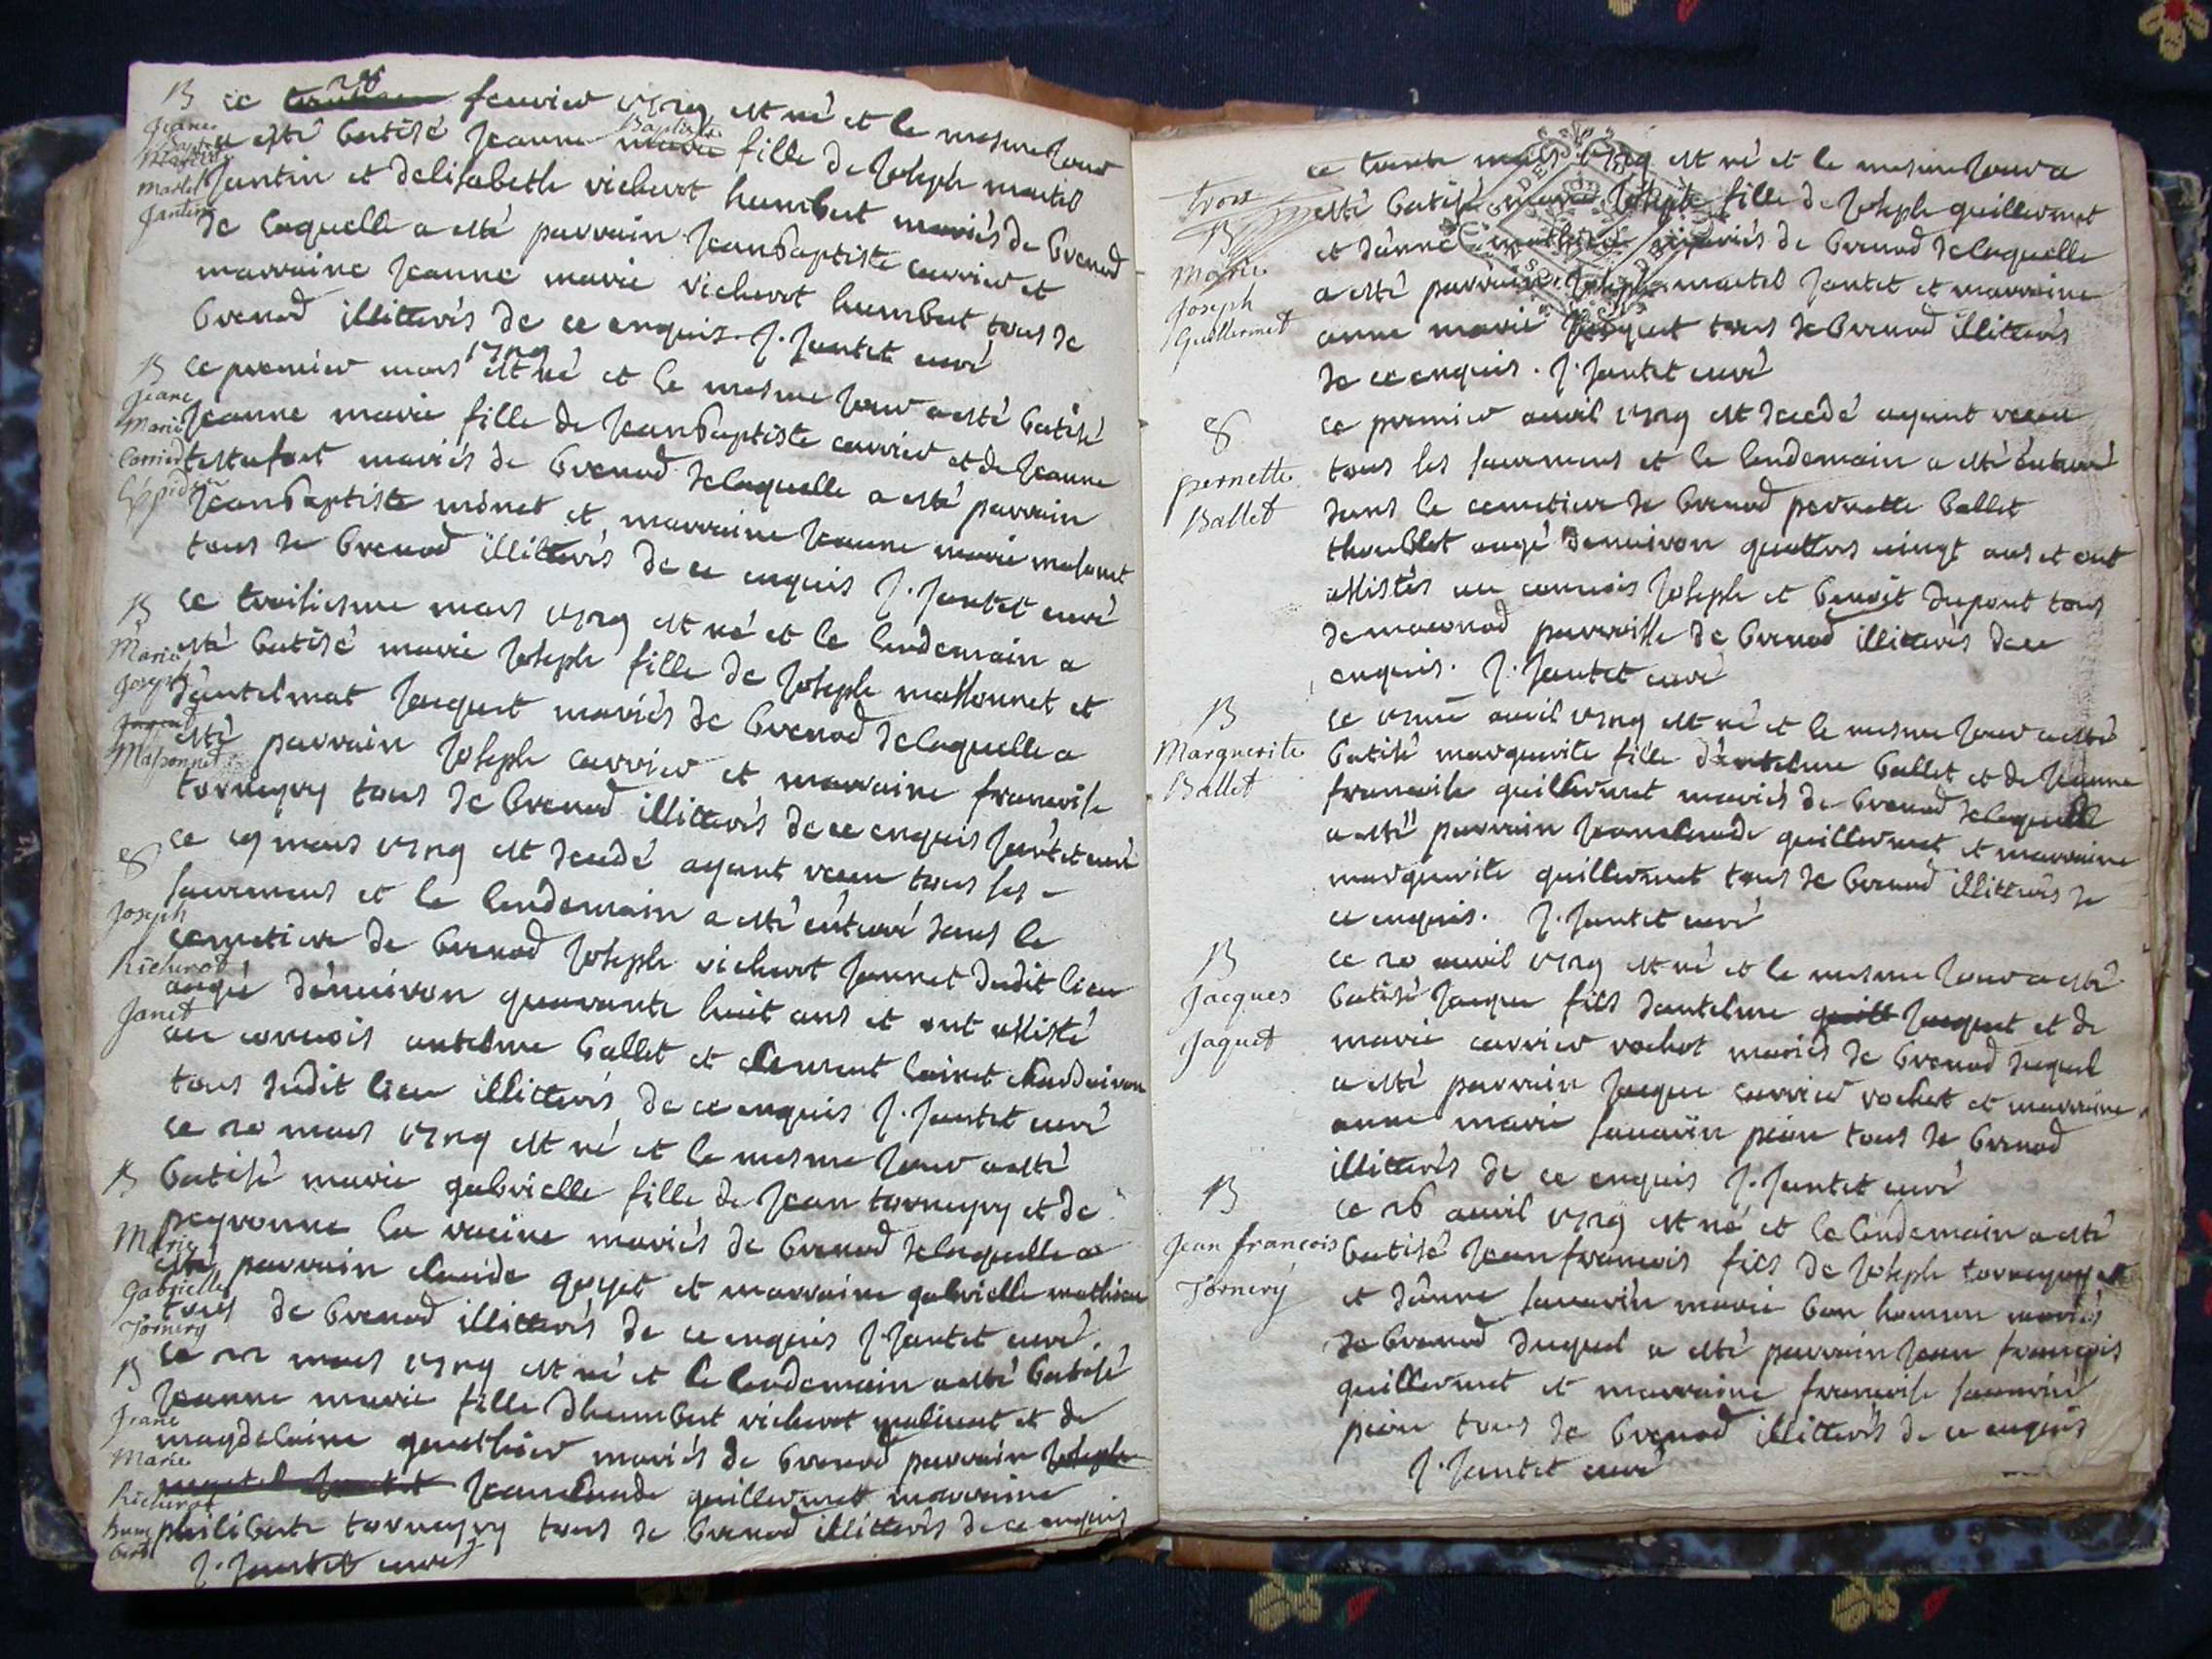 B
ce 28 feurier 1729 est né et le mesme jour
a esté batisé jeanne Baptiste fille de joseph martel
jantin et delisabeth richerot humbert mariés de brenod
de laquelle a esté parrain jeanbaptiste carrier et
marraine jeanne marie richerot humbert tous de
brenod illitterés de ce enquis. J. jantet curé
Jeane
Baptiste
Martel
Jantin
B
ce premier mars 1729 est né et le mesme jour a esté batisé
jeanne marie fille de jeanbaptiste carrier et de jeanne
mariés de brenod de laquelle a esté parrain
jeanbaptiste monet et marraine jeanne marie
tous de brenod illitterés de ce enquis J. jantet curé
Jeane
Marie
Carrier
B
ce troisiesme mars 1729 est né et le lendemain a
esté batisé marie joseph fille de joseph massonnet et
jacquet mariés de brenod de laquelle a
esté parrain joseph carrier et marraine francoise
tornegry tous de brenod illitterés de ce enquis jantet curé
Marie
Joseph
Jaquet
Massonnet
ce 19 mars 1729 est decedé ayant receu tous ses
sacremens et le lendemain a esté enterré dans le
cemetiere de brenod joseph richerot jannet dudit lieu
aagé denuiron quarante huit ans et ont assisté
au conuois antelme ballet et clement
tous dudit lieu illitterés de ce enquis J. jantet curé
Joseph
Richerot
Janet
B
ce 20 mars 1729 est né et le mesme jour a esté
batisé marie gabrielle fille de jean tornegry et de
peyronne la racine mariés de brenod de laquelle a
esté parrain claude goyet et marraine gabrielle mathieu
tous de brenod illitterés de ce enquis J. jantet curé.
Marie
Gabrielle
Tornery
B
ce 22 mars 1729 est né et le lendemain a esté batisé
jeanne marie fille dhumbert richerot et de
magdelaine mariés de brenod parrain joseph
martel jantet jeanclaude guillermet marraine
philiberte tornegry tous de brenod illitterés de ce enquis
J. jantet curé
Jeane
Marie
Richerot
humbert
trois
B
ce trente mars 1729 est né et le mesme jour a
esté batisé marie joseph fille de joseph guillermet
et danne mathieu mariés de brenod de laquelle
a esté parrain joseph martel jantet et marraine
anne marie jacquet tous de brenod illitterés
de ce enquis. J. jantet curé
Marie
Joseph
Guillermet
ce premier auril 1729 est decedé ayant receu
tous les sacremens et le lendemain a esté enterré
dans le cemetiere de brenod pernette ballet
aagé denuiron quattres vingt ans et ont
assistés au conuois joseph et benoit dupont tous
de macconod parroisse de brenod illitterés de ce
enquis. J. jantet curé
pernette
Ballet
B
ce auril 1729 est né et le mesme jour a esté
batisé marguerite fille d'antelme ballet et de jeanne
francoise guillermet mariés de brenod de laquelle
a esté parrain jeanclaude guillermet et marraine
marguerite guillermet tous de brenod illitterés de
ce enquis. J. jantet curé
Marguerite
Ballet
B
ce 20 auril 1729 est né et le mesme jour a esté
batisé jacque fils dantelme guill jacquet et de
marie carrier rochet mariés de brenod duquel
a esté parrain jacque carrier rochet et marraine
anne marie sauarin pion tous de brenod
illitterés de ce enquis J. jantet curé
Jacques
Jaquet
B
ce 26 auril 1729 est né et le lendemain a esté
batisé jean francois fils de joseph tornegry et
et danne sauarin marie bon homme mariés
de brenod duquel a esté parrain jean francois
guillermet et marraine francoise sauarin
pion tous de brenod illitterés de ce enquis
J. jantet curé
Jean francois
Tornery